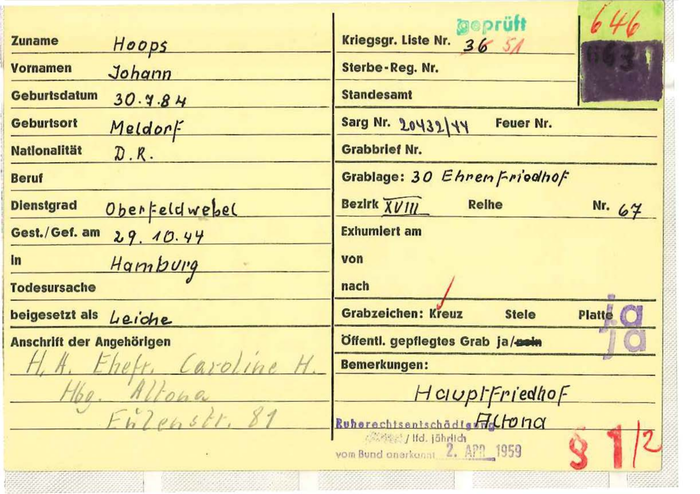 Zuname Hoops
Vornamen Johann
Geburtsdatum 30.7.84
Geburtsort Meldorf
Nationalität D.R.
Beruf
Dienstgrad Oberfeldwebel
Gest./Gef. am 29.10.44
in Hamburg
Todesursache
beigesetzt als Leiche
Anschrift der Angehörigen
H.A. Ehefr. Caroline H.
Hbg. Altona
Eulenstr. 81
geprüft
646
Kriegsgr. Liste Nr. 36 51
63
Sterbe-Reg. Nr.
Standesamt
Sarg Nr. 20432/44 Feuer Nr.
Grabbrief Nr.
Grablage: 30 Ehrenfriedhof
Bezirk XVIII Reihe Nr. 67
Exhumiert am
von
nach
Grabzeichen: Kreuz Stele Platte ja
Öffentl. gepflegtes Grab ja/nein ja
Bemerkungen:
Hauptfriedhof
Altona
Ruherechtsentschädigung
/ lfd. jährlich
vom Bund anerkannt 2. APR. 1959
§ 1/2